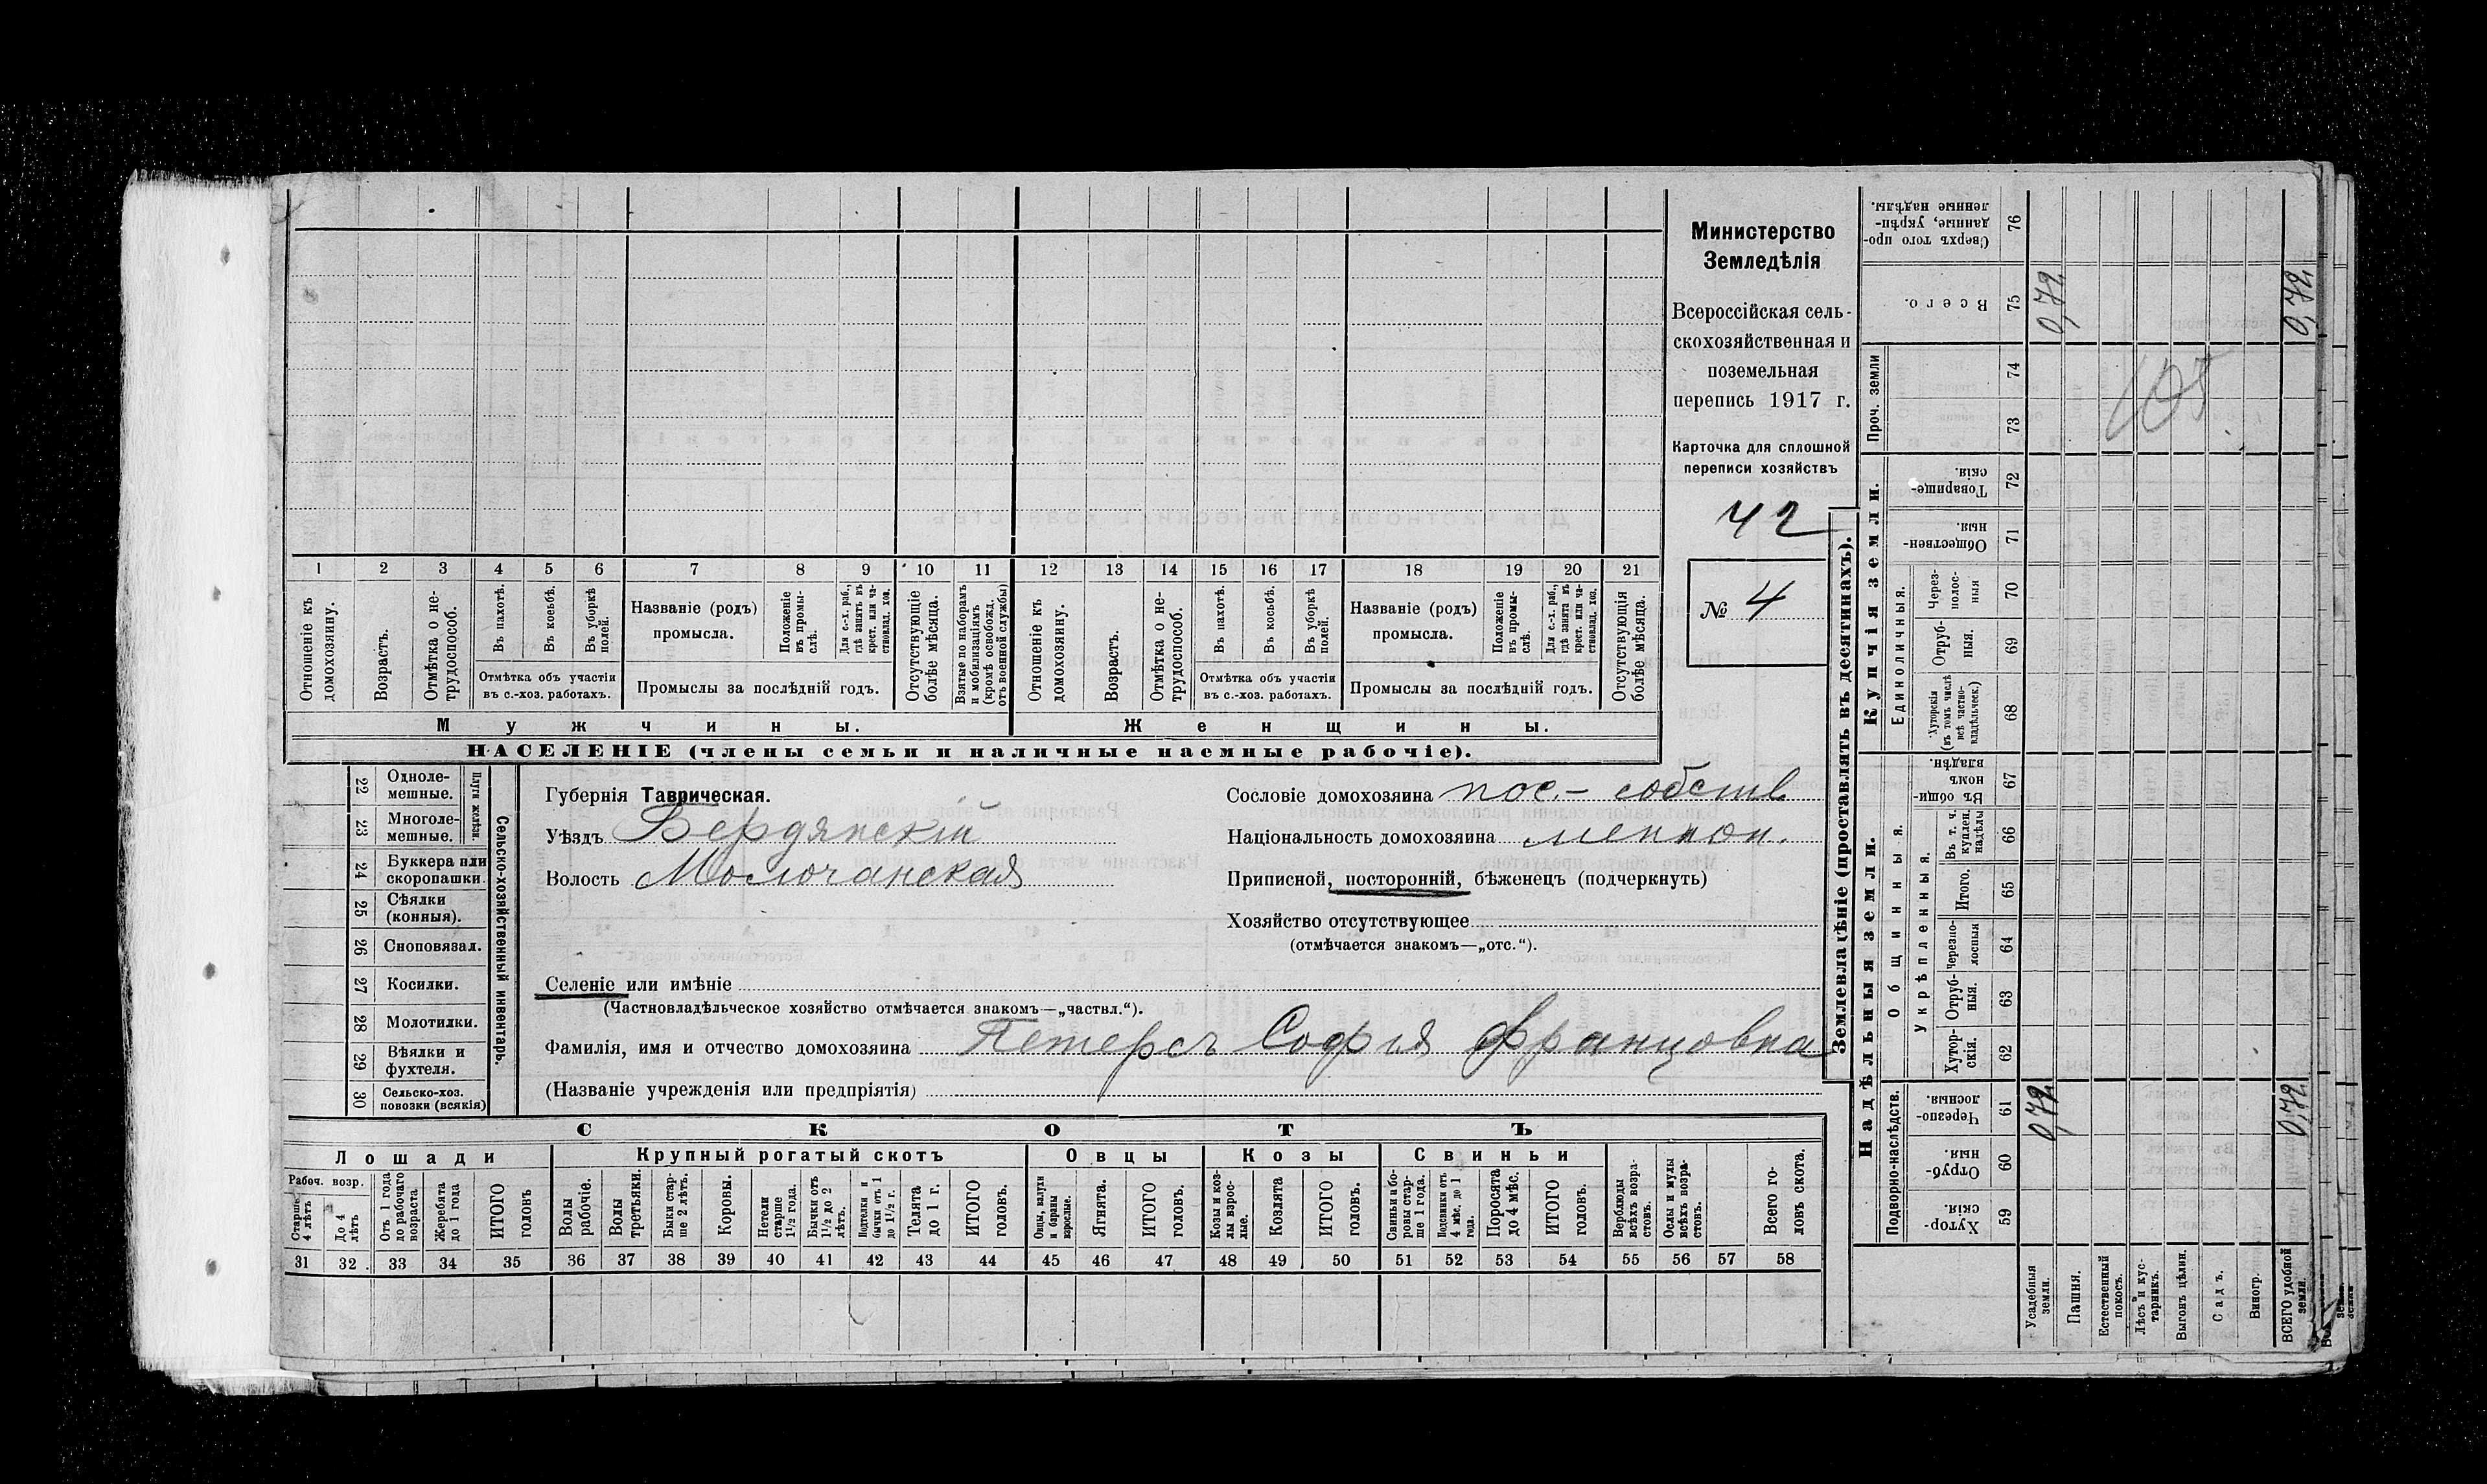 Министерство
Земледѣлія
Всероссійская сель-
скохозяйственная и
поземельная
перепись 1917 г.
Карточка для сплошной
переписи хозяйствъ
42
№ 4
1 2 3 4 5 6 7 8 9 10 11 12 13 14 15 16 17 18 19 20 21
Отношеніе къ домохозяину.
Возрастъ.
Отмѣтка о не-трудоспособ.
Въ пахотѣ.
Въ косьбѣ.
Въ уборкѣ полей.
Отмѣтка объ участіи
въ с.-хоз. работахъ.
Названіе (родъ)
промысла.
Положеніе въ промы-слѣ.
Для с.-х. раб., гдѣ занятъ въ крест. или ча-стновлад. хоз.
Промыслы за послѣдній годъ.
Отсутствующіе болѣе мѣсяца.
Взятые по наборамъ и мобилизаціямъ (кромѣ освобожд. отъ военной службы)
Отношеніе къ домохозяину.
Возрастъ.
Отмѣтка о не-трудоспособ.
Въ пахотѣ.
Въ косьбѣ.
Въ уборкѣ полей.
Отмѣтка объ участіи
въ с.-хоз. работахъ.
Названіе (родъ)
промысла.
Положеніе въ промы-слѣ.
Для с.-х. раб., гдѣ занята въ крест. или ча-стновлад. хоз.
Промыслы за послѣдній годъ.
Отсутствующія болѣе мѣсяца.
Мужчины. Женщины.
НАСЕЛЕНІЕ (члены семьи и наличные наемные рабочіе).
22 Одноле-мешные.
23 Многоле-мешные.
Плуги желѣзн.
24 Буккера или скоропашки.
25 Сѣялки (конныя).
26 Сноповязал.
27 Косилки.
28 Молотилки.
29 Вѣялки и фухтеля.
30 Сельско-хоз. повозки (всякія)
Сельско-хозяйственный инвентарь.
Губернія Таврическая.
Уѣздъ Бердянскій
Волость Молочанская
Сословіе домохозяина пос.- собств
Національность домохозяина меннон.
Приписной, посторонній, бѣженецъ (подчеркнуть)
Хозяйство отсутствующее
(отмѣчается знакомъ—„отс.“).
Селеніе или имѣніе
(Частновладѣльческое хозяйство отмѣчается знакомъ—„частвл.“).
Фамилія, имя и отчество домохозяина Петерсъ Софья Францовна
(Названіе учрежденія или предпріятія)
СКОТЪ
Лошади Крупный рогатый скотъ Овцы Козы Свиньи
Рабоч. возр.
Старше 4 лѣтъ
До 4 лѣтъ
Отъ 1 года до рабочаго возраста
Жеребята до 1 года
ИТОГО головъ
Волы рабочіе.
Волы третьяки.
Быки стар-ше 2 лѣтъ.
Коровы.
Нетели старше 1½ года.
Бычки отъ 1½ до 2 лѣтъ.
Подтелки и бычки отъ 1 до 1½ г.
Телята до 1 г.
ИТОГО головъ.
Овцы, валухи и бараны взрослые.
Ягнята.
ИТОГО головъ.
Козы и коз-лы взрос-лые.
Козлята
ИТОГО головъ.
Свиньи и бо-ровы стар-ше 1 года.
Подсвинки отъ 4 мѣс. до 1 года.
Поросята до 4 мѣс.
ИТОГО головъ.
Верблюды всѣхъ возра-стовъ.
Ослы и мулы всѣхъ возра-стовъ.
Всего го-ловъ скота.
31 32 33 34 35 36 37 38 39 40 41 42 43 44 45 46 47 48 49 50 51 52 53 54 55 56 57 58
Землевладѣніе (проставлять въ десятинахъ).
Надѣльныя земли. Купчія земли.
Проч. земли
Подворно-наслѣдств.
Общинныя.
Укрѣпленныя.
Единоличныя.
Хутор-скія. 59
Отруб-ныя. 60
Черезпо-лосныя. 61
Хутор-скія. 62
Отруб-ныя. 63
Черезпо-лосныя 64
Итого. 65
Въ т. ч. куплен. надѣлы 66
Въ общи-номъ владѣн. 67
Хуторскія (въ томъ числѣ всѣ частно-владѣльческ.) 68
Отруб-ныя. 69
Через-полос-ныя 70
Обществен-ныя. 71
Товарище-скія. 72
73
74
Всего. 75
Сверхъ того про-данные, укрѣп-ленные надѣлы. 76
Усадебныя земли.
Пашня.
Естественный покосъ.
Лѣсъ и кус-тарникъ.
Выгонъ цѣлин.
Садъ.
Виногр.
ВСЕГО удобной земли.
0,72
0,72
0,72
0,72
105